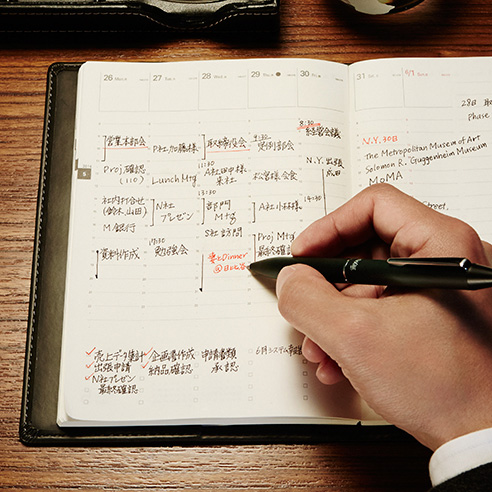 26
27
28
29
30
31
6/1
営業本部会
P社加藤様
取締役会
9:30
定例部会
8:30
経営会議
Proj.確認
(110)
Lunch Mtg
A社田中様
来社
松宮様会食
N.Y.出張
成田
社内打合せ
(鈴木、山田)
N社
プレゼン
13:30
部門
Mtg
A社小林様
14:30
M銀行
S社訪問
資料作成
17:30
勉強会
Proj Mtg
最終確認
妻とDinner
@日比谷
N.Y. 30日
The Metropolitan Museum of Art
Solomon R. Guggenheim Museum
MoMA
Street,
28日
Phase
売上データ集計
出張申請
N社プレゼン
最終確認
企画書作成
納品確認
申請書類
承認
6月システム
5